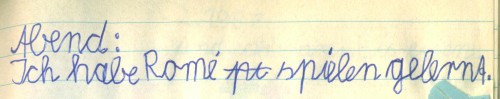 Abend:
Ich habe Romé spielen gelernt.